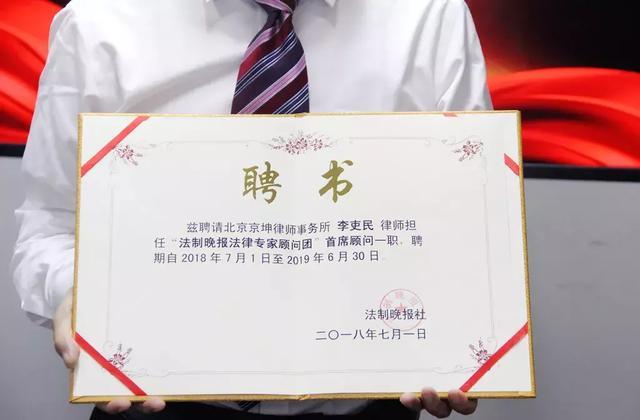 聘书
兹聘请北京京坤律师事务所 李吏民 律师担
任“法制晚报法律专家顾问团”首席顾问一职，聘
期自2018年7月1日至2019年6月30日。
法制晚报社
二〇一八年七月一日